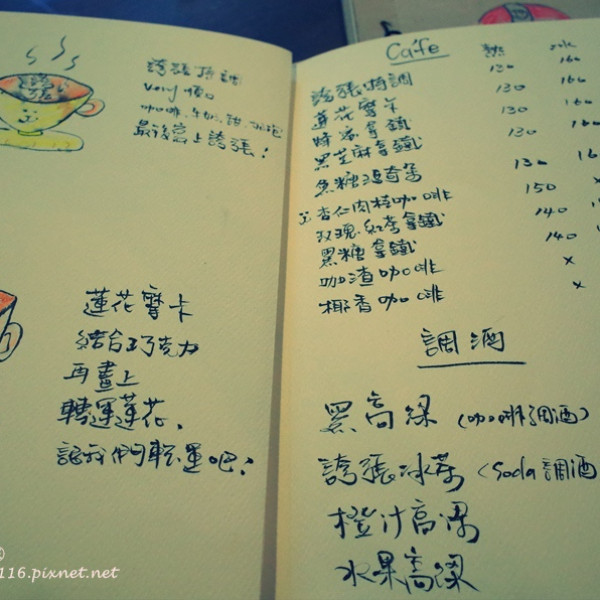 誇張特調
very 順口
咖啡、牛奶、甜、奶泡
最後寫上誇張!
蓮花摩卡
結合巧克力
再畫上
轉運蓮花,
讓我們轉運吧!
Cafe 熱
誇張特調 130 160
蓮花摩卡 130 160
特濃拿鐵 130
黑芝麻拿鐵 130
焦糖瑪奇朵 130
杏仁肉桂咖啡 150 x
玫瑰紅茶拿鐵 140
黑糖拿鐵 140
咖渣咖啡 x
椰香咖啡 x
調酒
黑高粱 (咖啡調酒)
誇張冰茶 (Soda調酒
橙汁高粱
水果高粱
116.pixnet.net